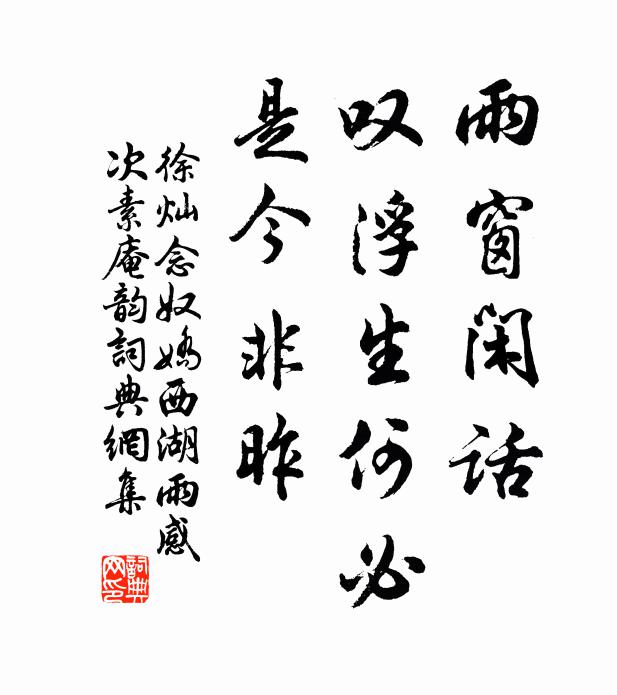 雨窗闲话
叹浮生何必
是今非昨
徐灿念奴娇西湖雨感
次素庵韵詞典網集
詞典
网印